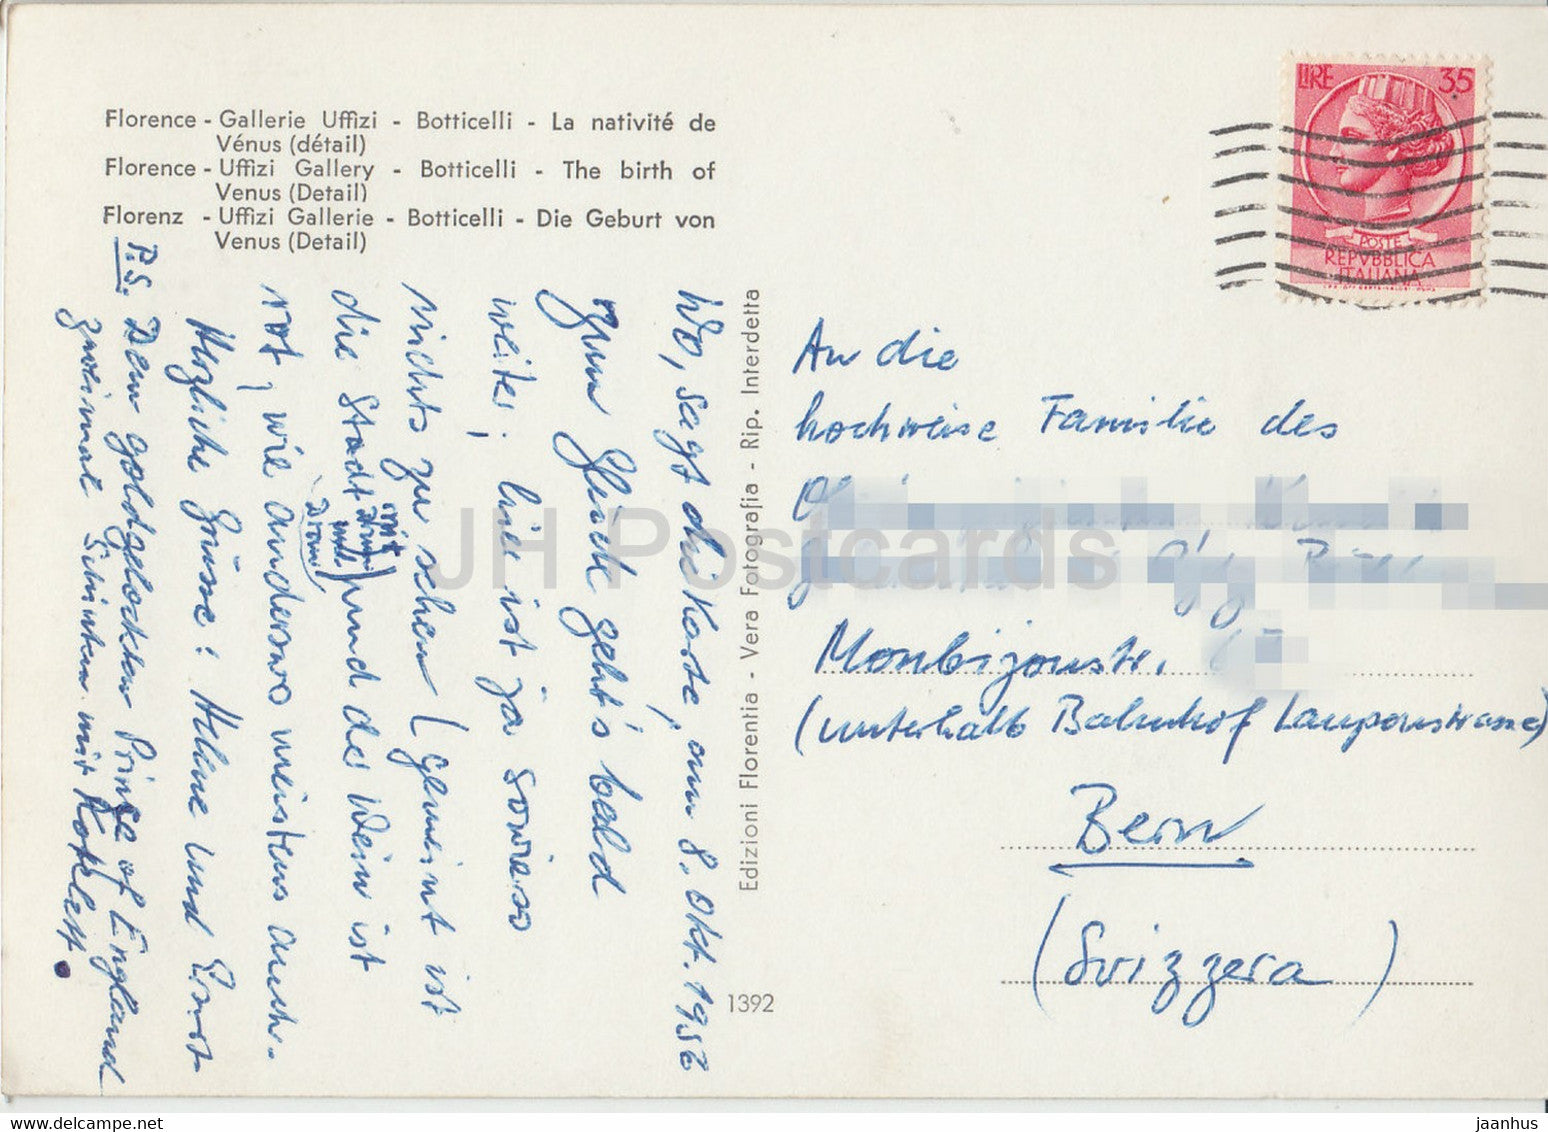 Florence - Gallerie Uffizi - Botticelli - La nativité de
Vénus (détail)
Florence - Uffizi Gallery - Botticelli - The birth of
Venus (Detail)
Florenz - Uffizi Gallerie - Botticelli - Die Geburt von
Venus (Detail)
LIRE 35
POSTE
REPVBBLICA
ITALIANA
Wo, sagt die Karte, am 8. Okt. 1956
Zum Glück geht's bald
weiter; hier ist ja sowieso
nichts zu sehen (gemeint ist
die Stadt mit
und
Drum) und der Wein ist
rot, wie anderswo meistens auch.
Herzliche Grüsse: Helene und Ernst
P.S. Dem goldgelockten Prinz of England
zweimal Schinken mit Kotlett.
Edizioni Florentia - Vera Fotografia - Rip. Interdetta
1392
An die
hochweise Familie des
Monbijoustr.
(unterhalb Bahnhof Laupenstrasse)
Bern
(Svizzera)
JH Postcards
jaanhus